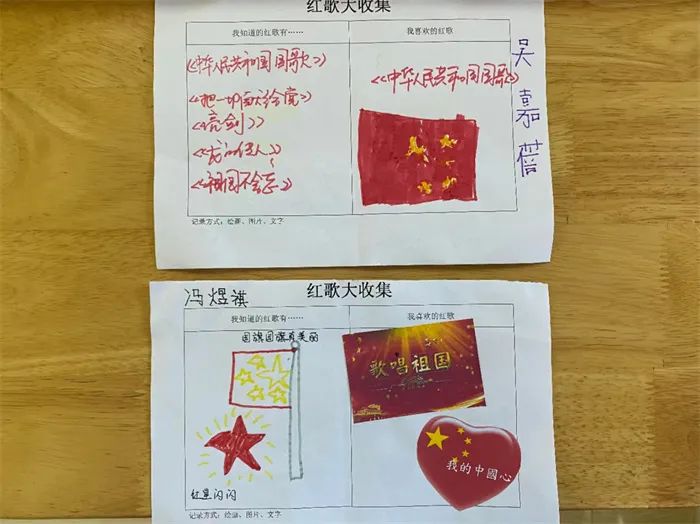 红歌大收集
我知道的红歌有……
我喜欢的红歌
《中华人民共和国国歌》
《把一切献给党》
《亮剑》
《祖国不会忘》
《中华人民共和国国歌》
吴嘉蓓
记录方式：绘画、图片、文字
冯煜祺
红歌大收集
我知道的红歌有……
我喜欢的红歌
国旗国旗真美丽
红星闪闪
歌唱祖国
我的中國心
记录方式：绘画、图片、文字